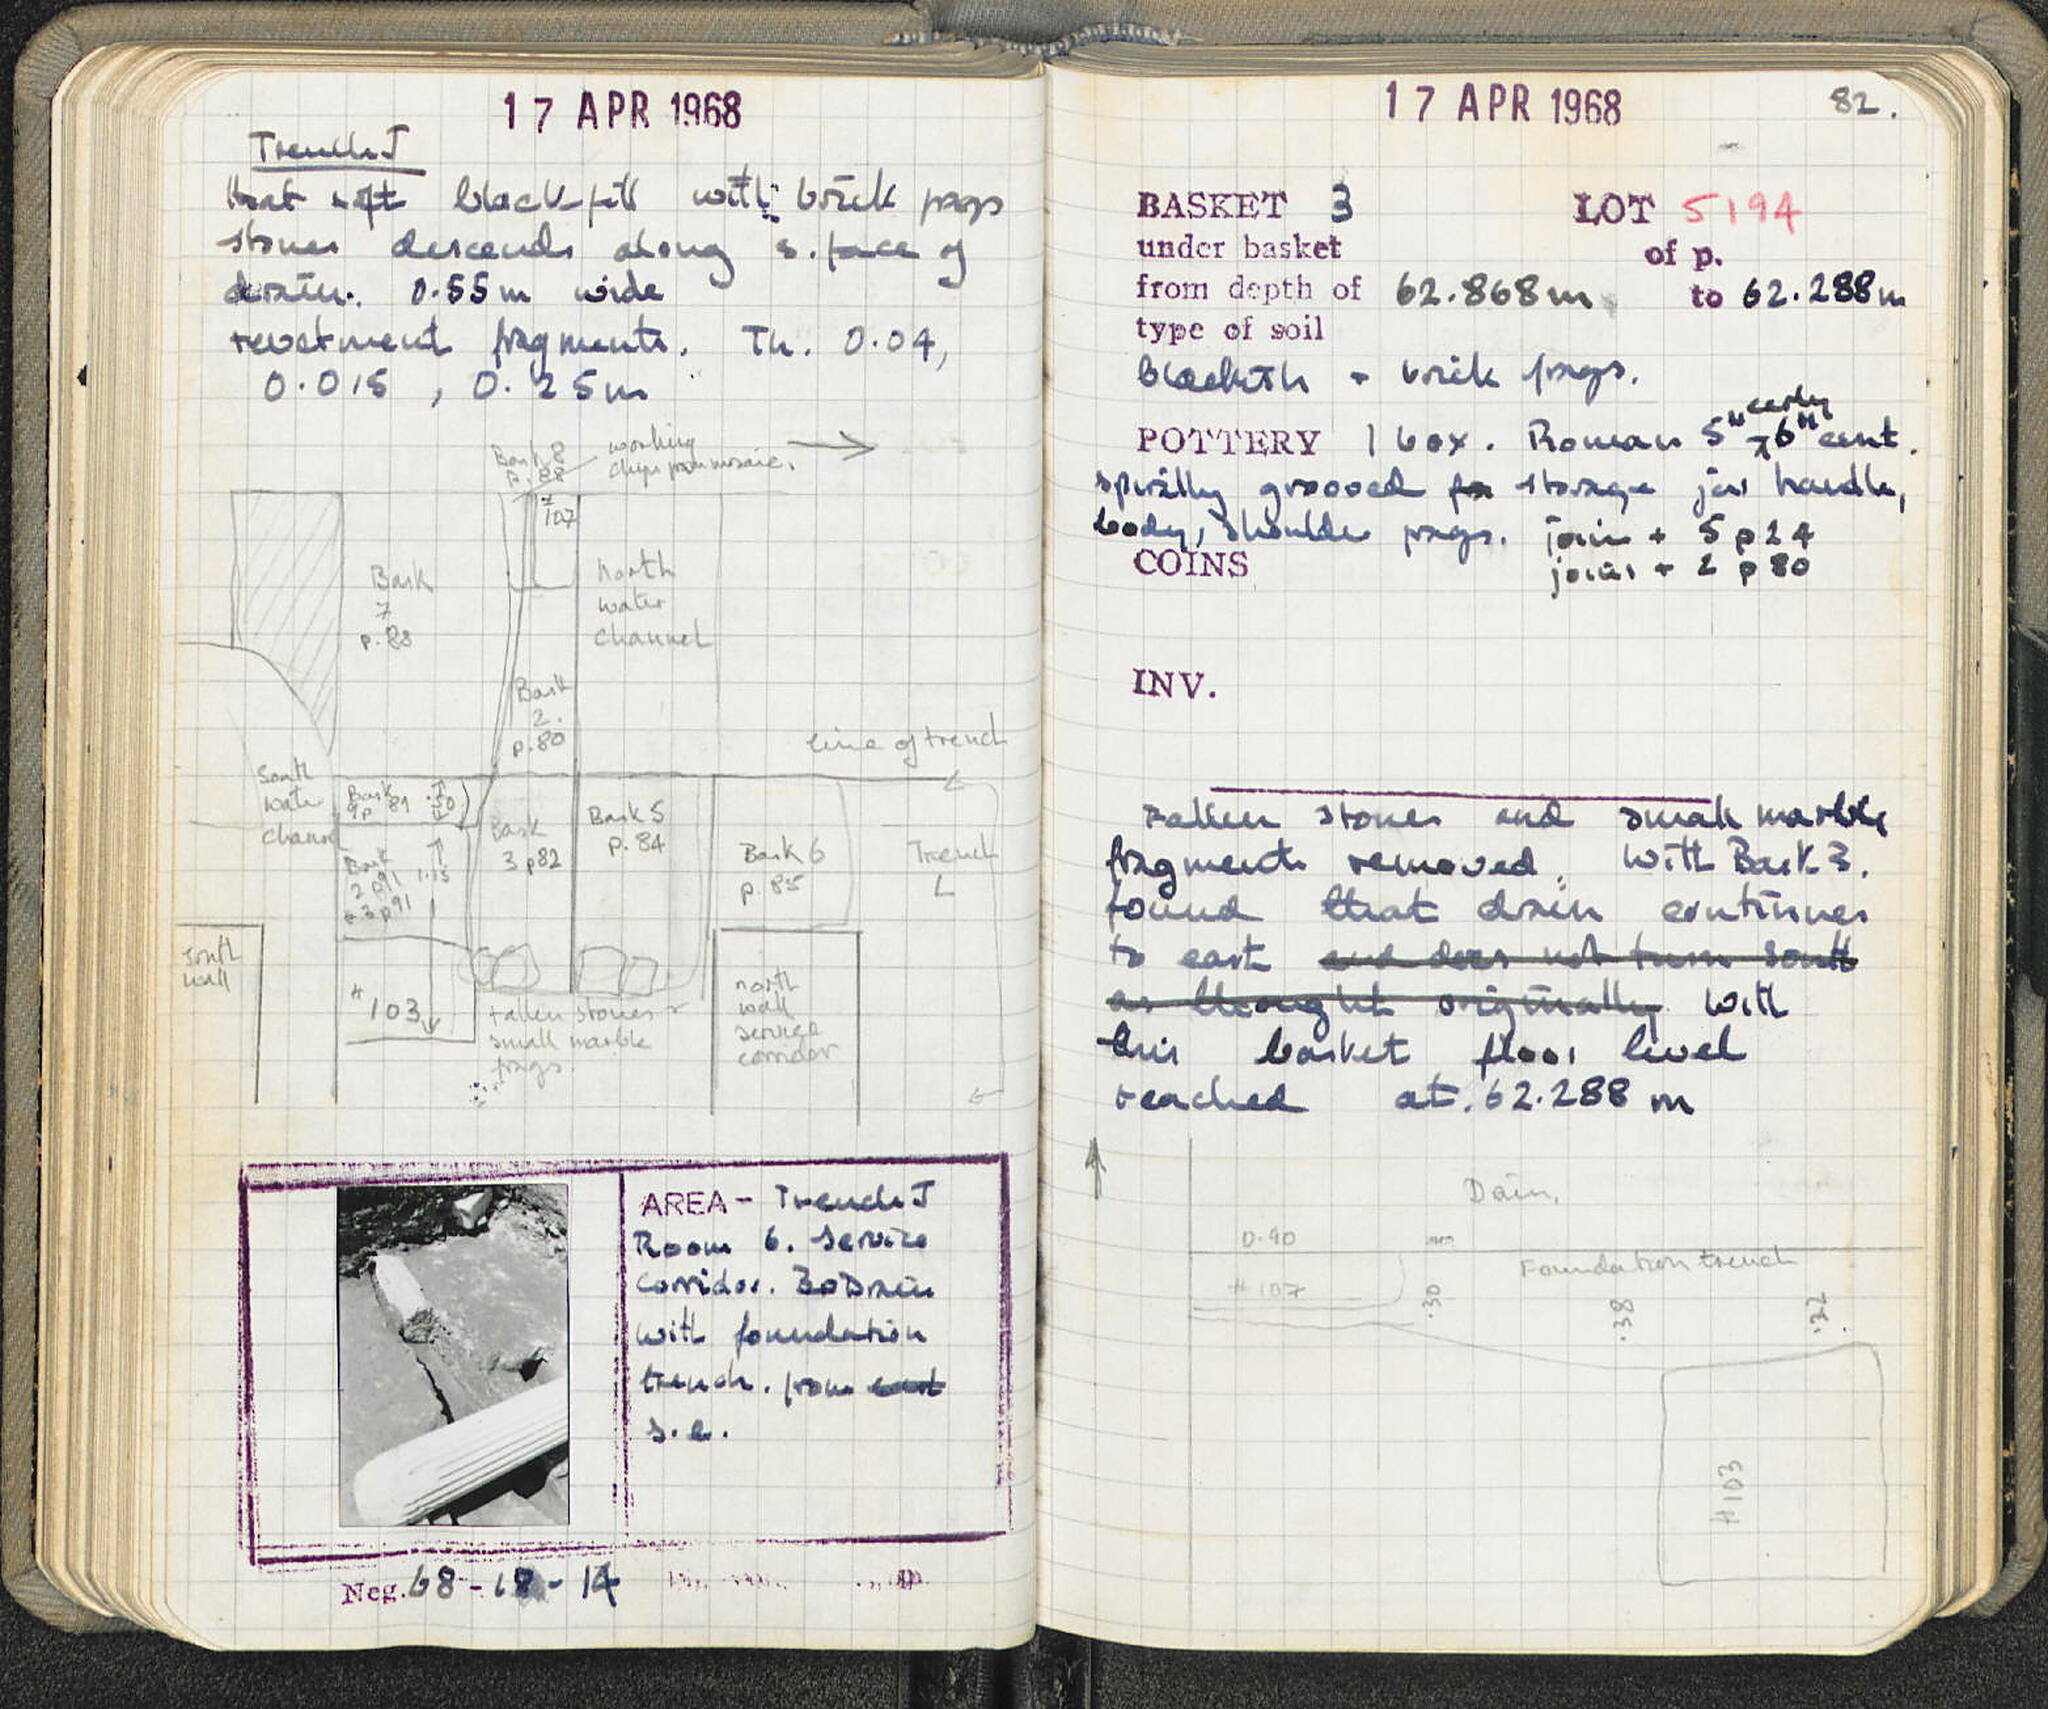 17 APR 1968
Trench J
that soft black fill with brick frags
stones descends along s. face of
drain. 0.55m wide
revetment fragments. Th. 0.04,
0.015, 0.25m
Bask 8
p. 88
working
chips from mosaic.
#
107
Bask
7
p. 88
north
water
channel
Bask
2.
p. 80
line of trench
South
water
channel
Bask
9p 81
.50
Bask
3 p82
Bask 5
p. 84
Bask 6
p. 85
Trench
L
Bask
2 p91
+ 3 p91
1.15
south
wall
#
103
fallen stones +
small marble
frags.
north
wall
service
corridor
AREA - Trench J
Room 6. Service
corridor. Drain
with foundation
trench. from east
s.e.
Neg. 68-18-14
17 APR 1968
82.
BASKET 3 LOT 5194
under basket of p.
from depth of 62.868m to 62.288m
type of soil
blackish + brick frags.
POTTERY 1 box. Roman 5th - early 6th cent.
spirally grooved storage jar handle,
body, shoulder frags. join + 5 p24
COINS joins + 2 p 80
INV.
Fallen stones and small marble
fragments removed. With Bask 3.
found that drain continues
to east and does not turn south
as thought originally. With
this basket floor level
reached at. 62.288 m
Dain.
0.90
Foundation trench
# 107
.30
.38
.32
#103